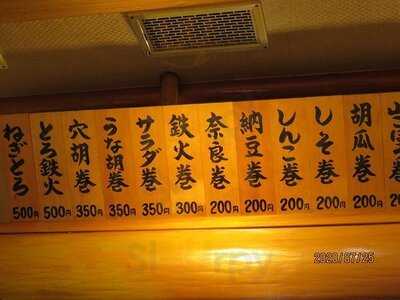 胡瓜巻 200円
しそ巻 200円
しんこ巻 200円
納豆巻 200円
奈良巻 200円
鉄火巻 300円
サラダ巻 350円
うな胡巻 350円
穴胡巻 350円
とろ鉄火 500円
ねぎとろ 500円
2020/07/25